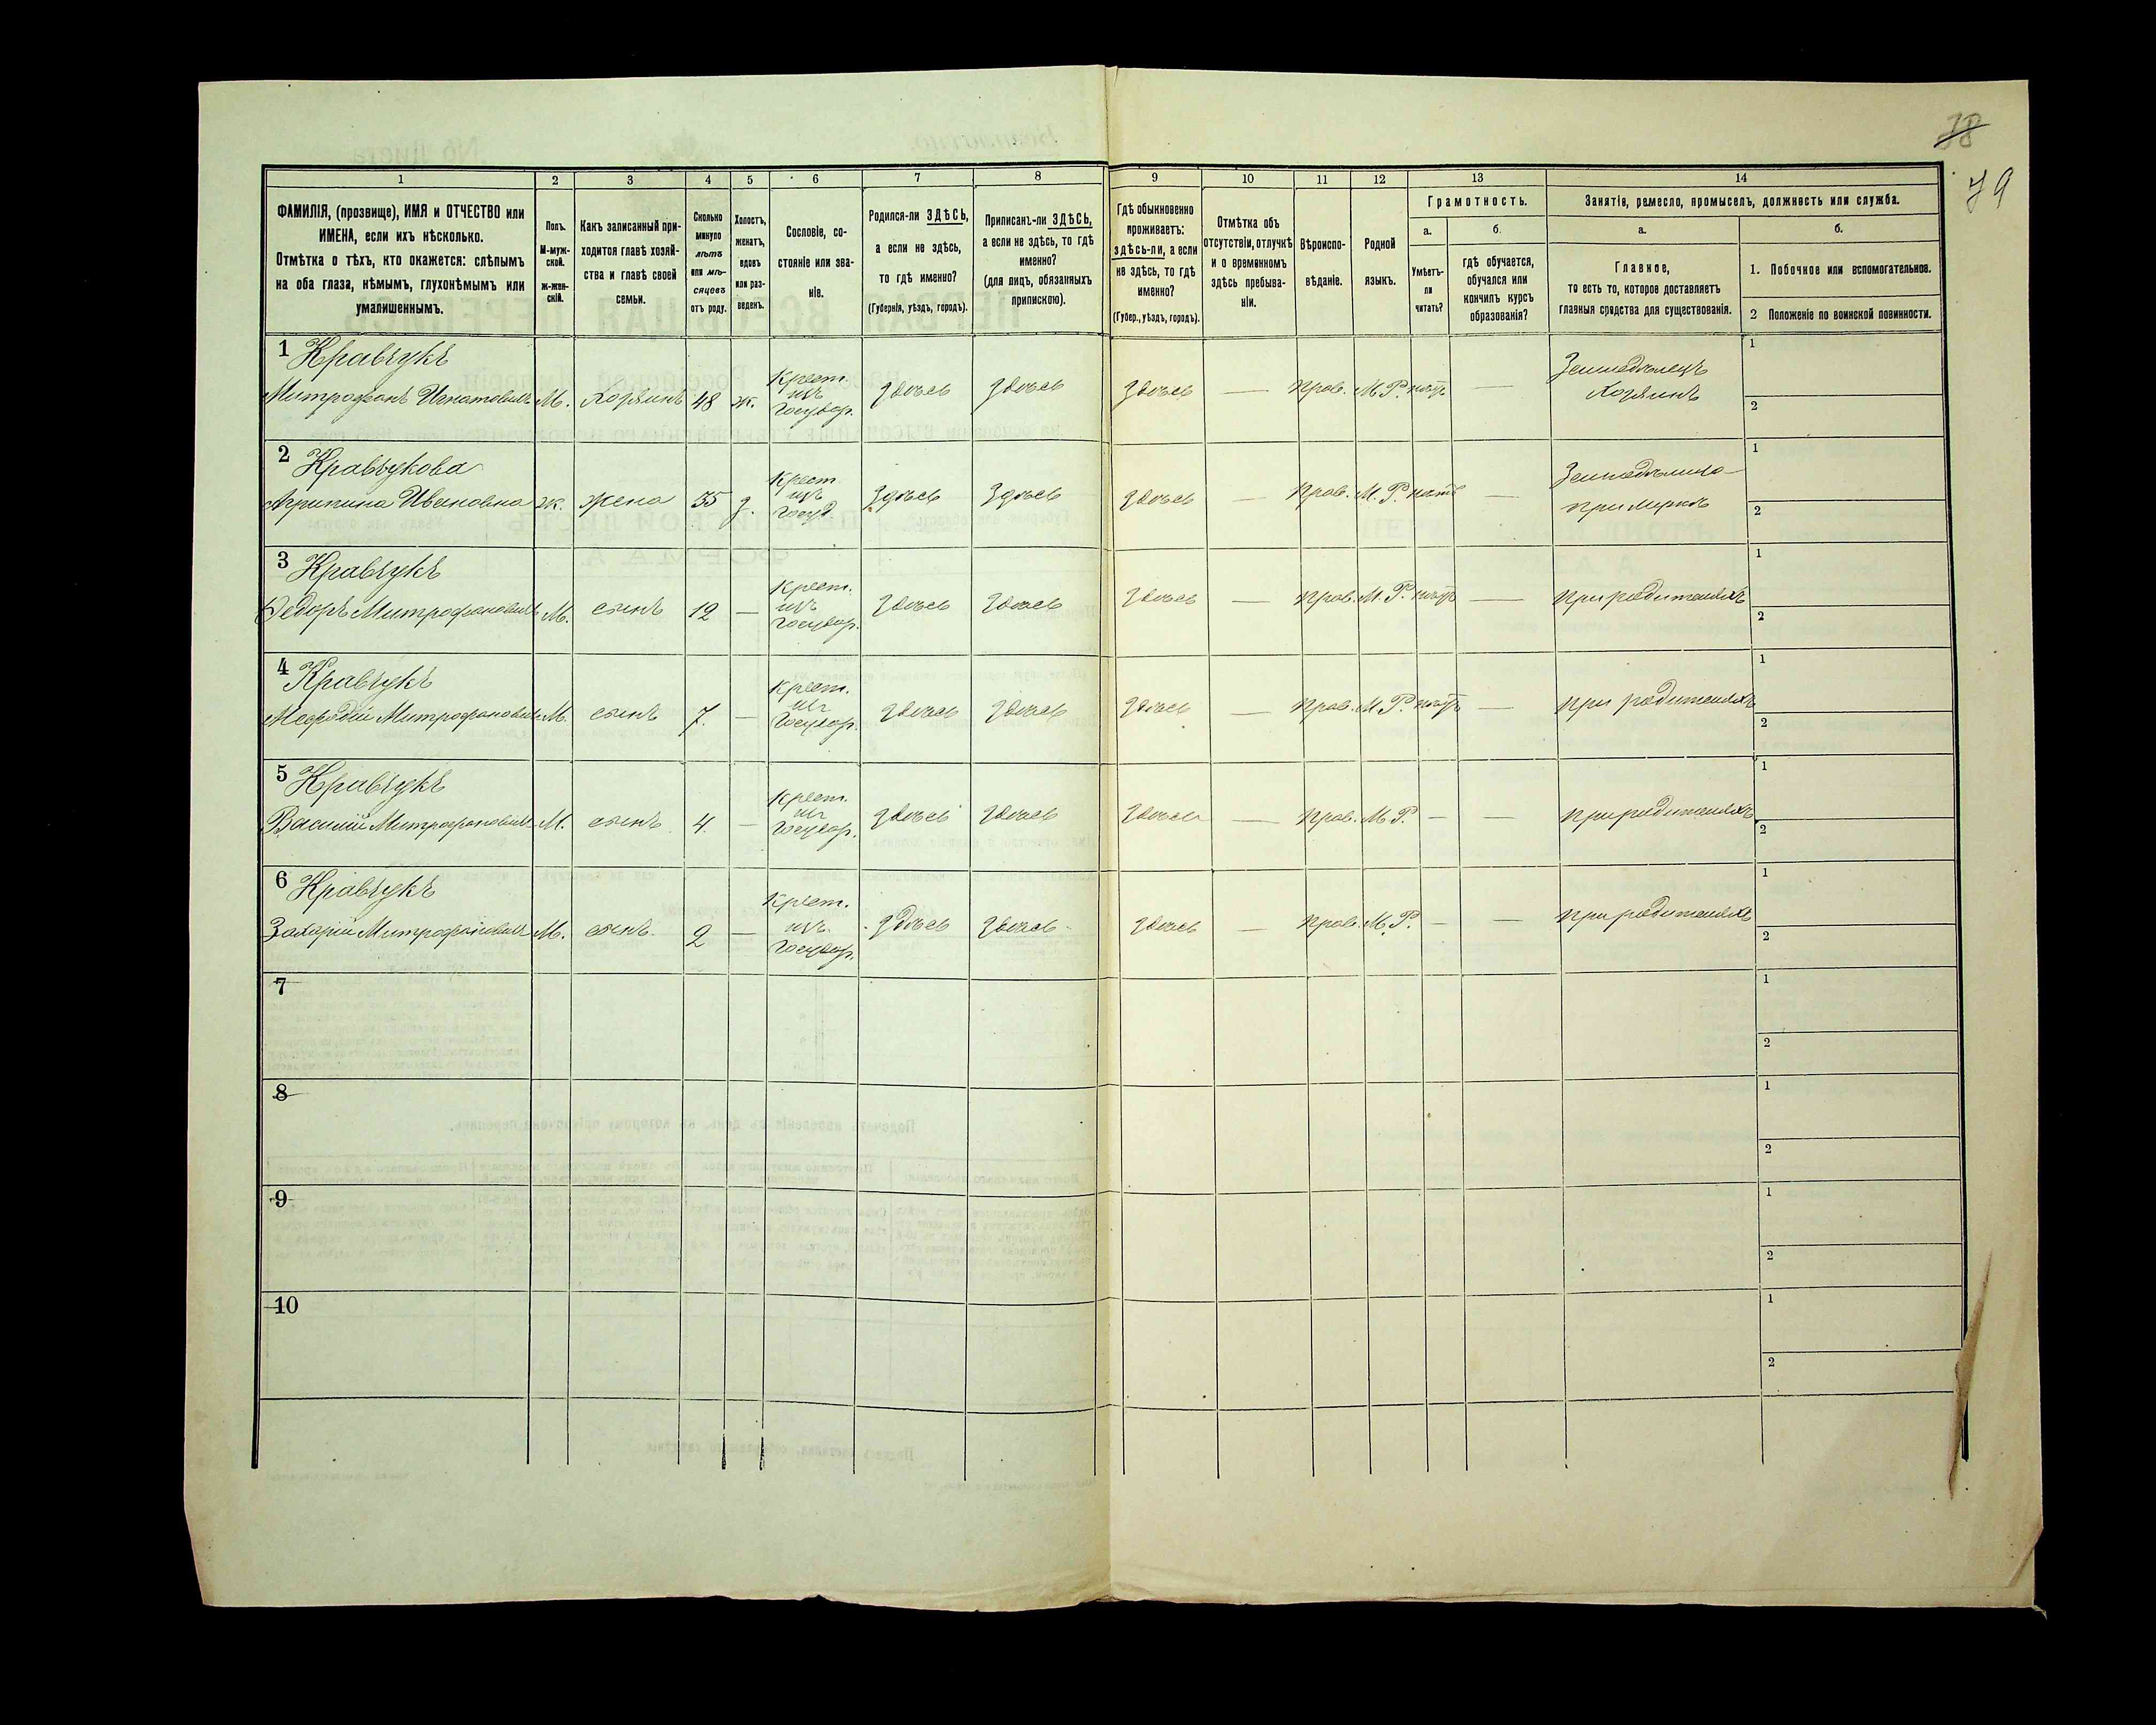 38
79
1 2 3 4 5 6 7 8 9 10 11 12 13 14
ФАМИЛІЯ, (прозвище), ИМЯ и ОТЧЕСТВО или
ИМЕНА, если ихъ нѣсколько.
Отмѣтка о тѣхъ, кто окажется: слѣпымъ
на оба глаза, нѣмымъ, глухонѣмымъ или
умалишеннымъ.
Полъ.
М-муж-
ской.
Ж-жен-
скій.
Какъ записанный при-
ходится главѣ хозяй-
ства и главѣ своей
семьи.
Сколько
минуло
лѣтъ
или мѣ-
сяцевъ
отъ роду.
Холостъ,
женатъ,
вдовъ
или раз-
веденъ.
Сословіе, со-
стояніе или зва-
ніе.
Родился-ли ЗДѢСЬ,
а если не здѣсь,
то гдѣ именно?
(Губернія, уѣздъ, городъ).
Приписанъ-ли ЗДѢСЬ,
а если не здѣсь, то гдѣ
именно?
(для лицъ, обязанныхъ
припискою).
Гдѣ обыкновенно
проживаетъ:
здѣсь-ли, а если
не здѣсь, то гдѣ
именно?
(Губер., уѣздъ, городъ).
Отмѣтка объ
отсутствіи, отлучкѣ
и о временномъ
здѣсь пребыва-
ніи.
Вѣроиспо-
вѣданіе.
Родной
языкъ.
Грамотность.
а.
Умѣетъ-
ли
читать?
б.
гдѣ обучается,
обучался или
кончилъ курсъ
образованія?
Занятія, ремесло, промыселъ, должность или служба.
а.
Главное,
то есть то, которое доставляетъ
главныя средства для существованія.
б.
1. Побочное или вспомогательное.
2 Положеніе по воинской повинности.
1 Кравчукъ
Митрофанъ Игнатовичъ М. Хозяинъ 48 ж. Крест. изъ Государ. здѣсь здѣсь здѣсь — Прав. М.Р. нѣтъ — Земледѣлецъ Хозяинъ 1 2
2 Кравчукова
Агрипина Ивановна ж. жена 35 з. Крест. изъ Госуд. Здѣсь Здѣсь здѣсь — Прав. М.Р. нѣтъ — 1 2
3 Кравчукъ
Федоръ Митрофановичъ М. сынъ 12 — Крест. изъ Государ. здѣсь здѣсь здѣсь — Прав. М.Р. нѣтъ — при родителяхъ 1 2
4 Кравчукъ
Мефодій Митрофановичъ М. сынъ 7. — Крест. изъ Государ. здѣсь здѣсь здѣсь — Прав. М.Р. нѣтъ — при родителяхъ 1 2
5 Кравчукъ
Василій Митрофановичъ М. сынъ 4. — Крест. изъ Государ. здѣсь здѣсь здѣсь — Прав. М.Р. — — при родителяхъ 1 2
6 Кравчукъ
Захарій Митрофановичъ М. сынъ 2 — Крест. изъ Государ. здѣсь здѣсь здѣсь — Прав. М.Р. — — при родителяхъ 1 2
7 1 2
8 1 2
9 1 2
10 1 2